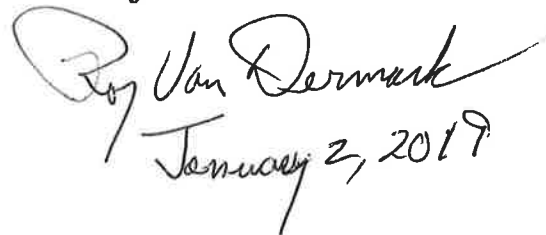 Roy Van Dermark
January 2, 2019